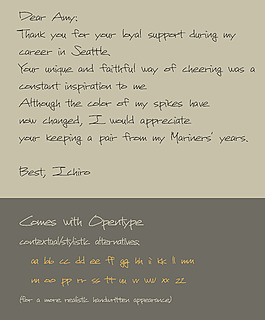 Dear Amy:
Thank you for your loyal support during my
career in Seattle.
Your unique and faithful way of cheering was a
constant inspiration to me
Although the color of my spikes have
now changed, I would appreciate
your keeping a pair from my Mariners' years.
Best, Ichiro
Comes with Opentype
contextual/stylistic alternatives.
aa bb cc dd ee ff gg hh ii kk ll mm
nn oo pp rr ss tt uu vv ww xx zz
(for a more realistic handwritten appearance)